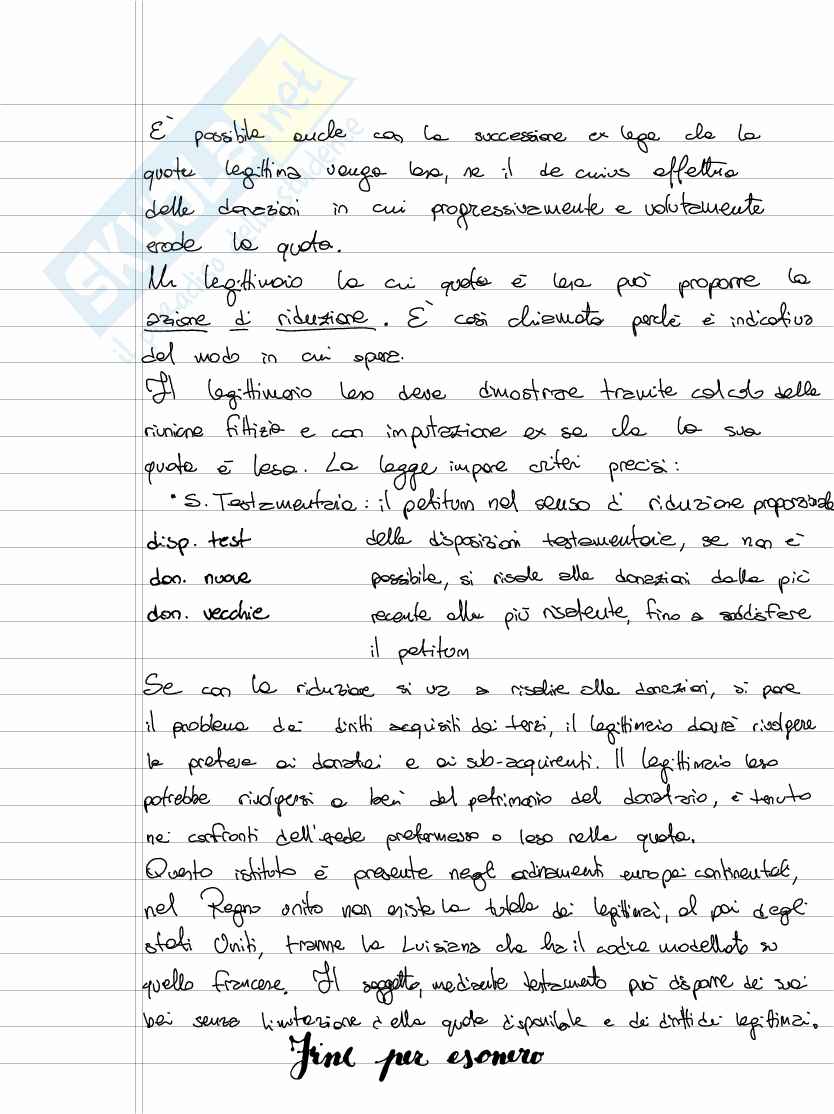 SKUOLA.net
il paradiso dello studente
È possibile anche con la successione ex lege che la
quota legittima venga lesa, se il de cuius effettua
delle donazioni in cui progressivamente e volutamente
erode la quota.
Un legittimario la cui quota è lesa può proporre la
azione di riduzione. È così chiamata perché è indicativa
del modo in cui opera.
Il legittimario leso deve dimostrare tramite calcolo della
riunione fittizia e con imputazione ex se che la sua
quota è lesa. La legge impone criteri precisi:
• S. Testamentaria: il petitum nel senso di riduzione proporzionale
disp. test delle disposizioni testamentarie, se non è
don. nuove possibile, si risale alle donazioni dalla più
don. vecchie recente alla più risalente, fino a soddisfare
il petitum
Se con la riduzione si va a risalire alle donazioni, si pone
il problema dei diritti acquisiti dai terzi, il legittimario dovrà rivolgere
le pretese ai donatari e ai sub-acquirenti. Il legittimario leso
potrebbe rivolgersi a beni del patrimonio del donatario, è tenuto
nei confronti dell'erede pretermesso o leso nella quota.
Questo istituto è presente negli ordinamenti europei continentali,
nel Regno unito non esiste la tutela dei legittimari, al pari degli
stati Uniti, tranne la Luisiana che ha il codice modellato su
quello francese. Il soggetto, mediante testamento può disporre dei suoi
beni senza limitazione della quota disponibile e dei diritti dei legittimari.
Fine per esonero